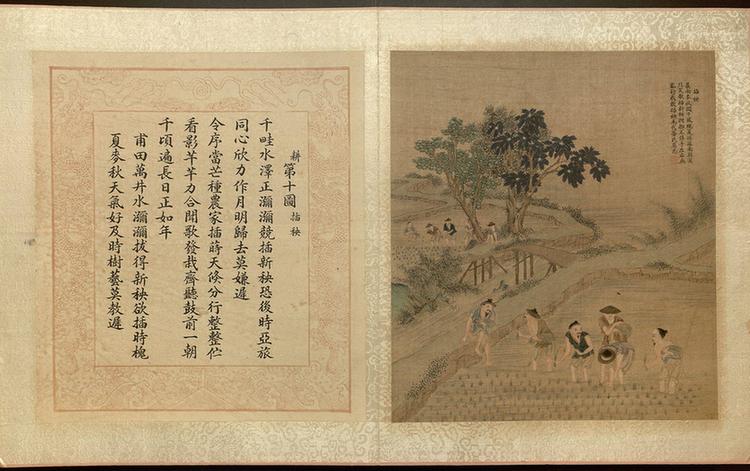 插秧
耕第十圖 插秧
千畦水澤正瀰瀰競插新秧恐後時亞旅
同心欣力作月明歸去莫嫌遲
令序當芒種農家插蒔天倏分行整整佇
看影芊芊力合聞歌發栽齊聽鼓前一朝
千頃遍長日正如年
甫田萬井水瀰瀰拔得新秧欲插時槐
夏麥秋天氣好及時樹藝莫教遲